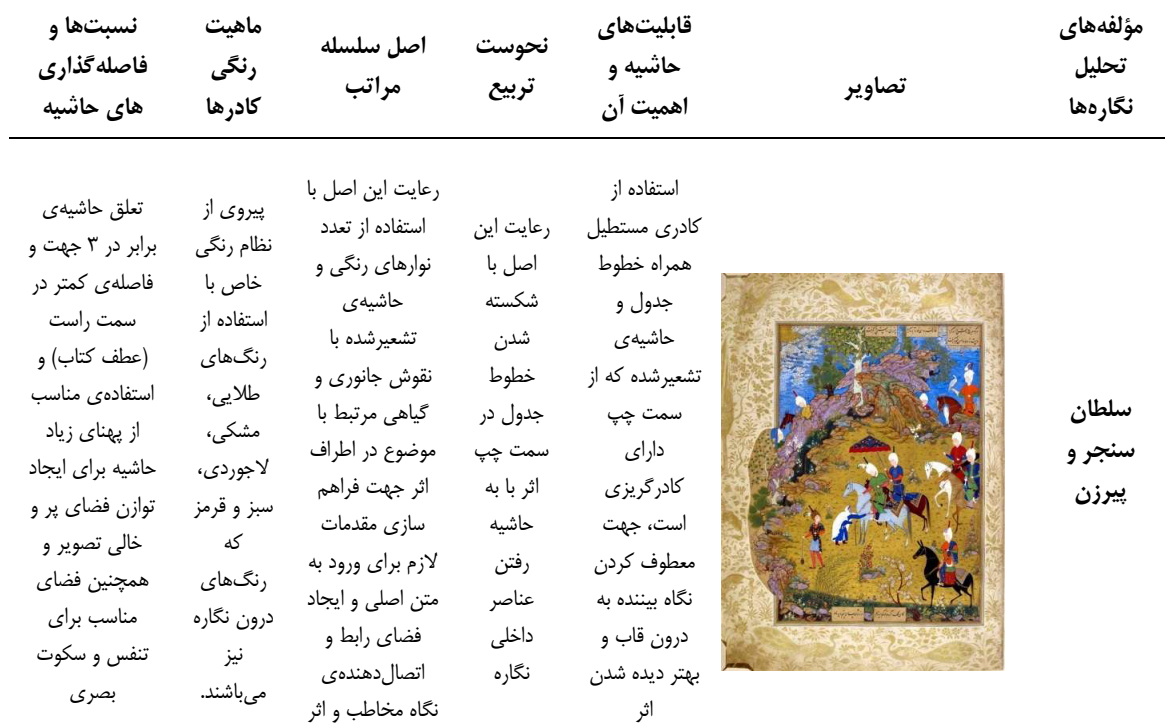 مؤلفه‌های
تحلیل
نگاره‌ها
تصاویر
قابلیت‌های
حاشیه و
اهمیت آن
نحوست
تربیع
اصل سلسله
مراتب
ماهیت
رنگی
کادرها
نسبت‌ها و
فاصله‌گذاری
های حاشیه
سلطان
سنجر و
پیرزن
استفاده از
کادری مستطیل
همراه خطوط
جدول و
حاشیه‌ی
تشعیرشده که از
سمت چپ
دارای
کادرگریزی
است، جهت
معطوف کردن
نگاه بیننده به
درون قاب و
بهتر دیده شدن
اثر
رعایت این
اصل با
شکسته
شدن
خطوط
جدول در
سمت چپ
اثر با به
حاشیه
رفتن
عناصر
داخلی
نگاره
رعایت این اصل با
استفاده از تعدد
نوارهای رنگی و
حاشیه‌ی
تشعیرشده با
نقوش جانوری و
گیاهی مرتبط با
موضوع در اطراف
اثر جهت فراهم
سازی مقدمات
لازم برای ورود به
متن اصلی و ایجاد
فضای رابط و
اتصال‌دهنده‌ی
نگاه مخاطب و اثر
پیروی از
نظام رنگی
خاص با
استفاده از
رنگ‌های
طلایی،
مشکی،
لاجوردی،
سبز و قرمز
که
رنگ‌های
درون نگاره
نیز
می‌باشند.
تعلق حاشیه‌ی
برابر در ۳ جهت و
فاصله‌ی کمتر در
سمت راست
(عطف کتاب) و
استفاده‌ی مناسب
از پهنای زیاد
حاشیه برای ایجاد
توازن فضای پر و
خالی تصویر و
همچنین فضای
مناسب برای
تنفس و سکوت
بصری